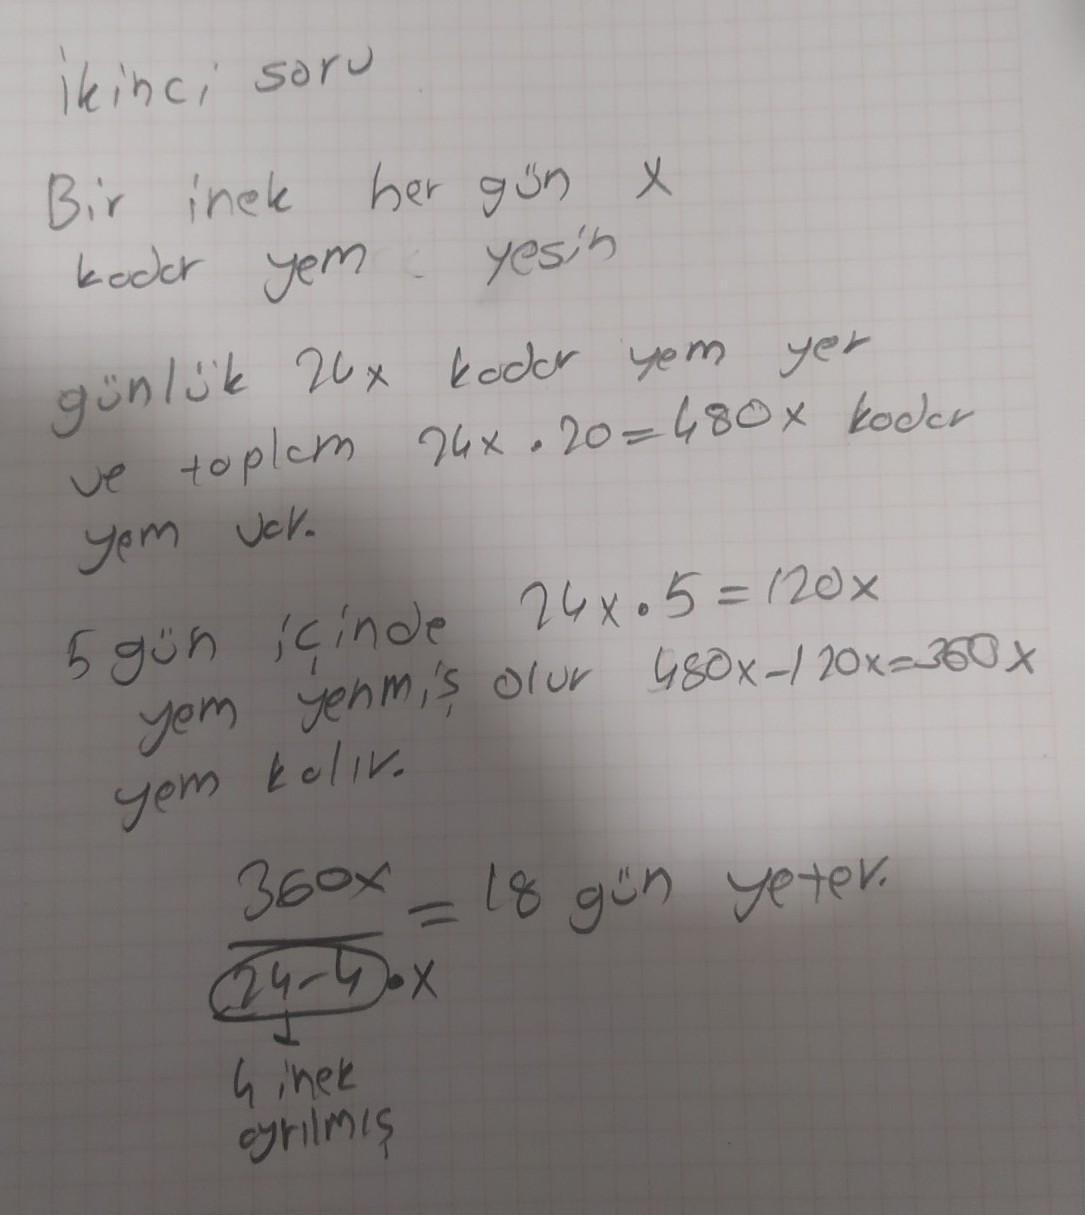 ikinci soru
Bir inek her gün x
kadar yem yesin
günlük 24x kadar yem yer
ve toplam 24x . 20 = 480x kadar
yem var.
5 gün içinde 24x . 5 = 120x
yem yenmiş olur 480x-120x=360x
yem kalır.
360x
= 18 gün yeter.
24-4 . x
4 inek
ayrılmış